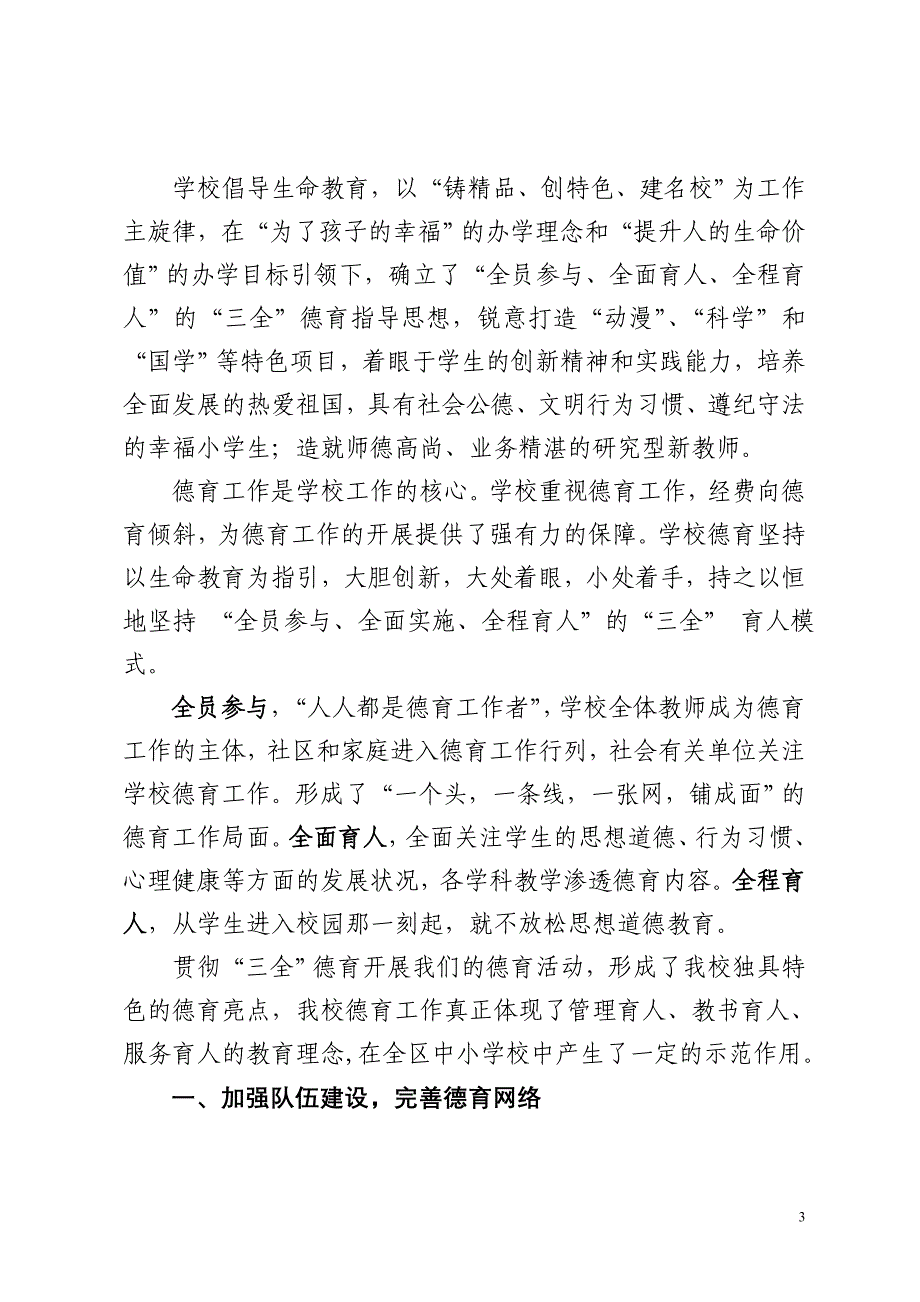 学校倡导生命教育，以“铸精品、创特色、建名校”为工作
主旋律，在“为了孩子的幸福”的办学理念和“提升人的生命价
值”的办学目标引领下，确立了“全员参与、全面育人、全程育
人”的“三全”德育指导思想，锐意打造“动漫”、“科学”和
“国学”等特色项目，着眼于学生的创新精神和实践能力，培养
全面发展的热爱祖国，具有社会公德、文明行为习惯、遵纪守法
的幸福小学生；造就师德高尚、业务精湛的研究型新教师。
德育工作是学校工作的核心。学校重视德育工作，经费向德
育倾斜，为德育工作的开展提供了强有力的保障。学校德育坚持
以生命教育为指引，大胆创新，大处着眼，小处着手，持之以恒
地坚持 “全员参与、全面实施、全程育人”的“三全” 育人模
式。
全员参与，“人人都是德育工作者”，学校全体教师成为德育
工作的主体，社区和家庭进入德育工作行列，社会有关单位关注
学校德育工作。形成了“一个头，一条线，一张网，铺成面”的
德育工作局面。全面育人，全面关注学生的思想道德、行为习惯、
心理健康等方面的发展状况，各学科教学渗透德育内容。全程育
人，从学生进入校园那一刻起，就不放松思想道德教育。
贯彻“三全”德育开展我们的德育活动，形成了我校独具特
色的德育亮点，我校德育工作真正体现了管理育人、教书育人、
服务育人的教育理念,在全区中小学校中产生了一定的示范作用。
一、加强队伍建设，完善德育网络
3